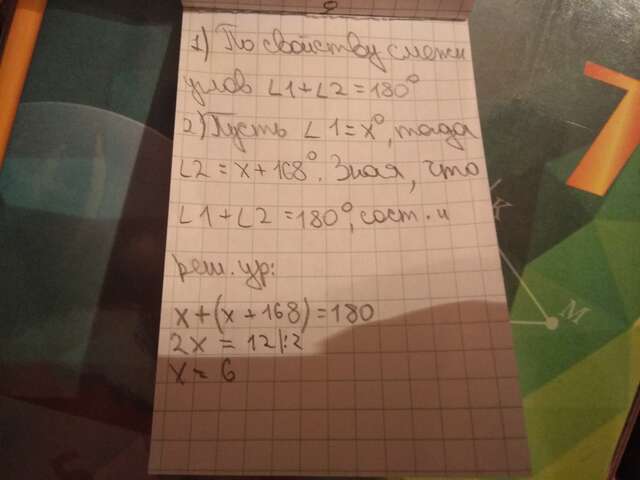 1) По свойству смежн
углов ∠1+∠2=180°
2) Пусть ∠1=x°, тогда
∠2=x+168°. Зная, что
∠1+∠2=180°, сост. и
реш. ур:
x+(x+168)=180
2x = 12 |:2
x = 6
7
K
M